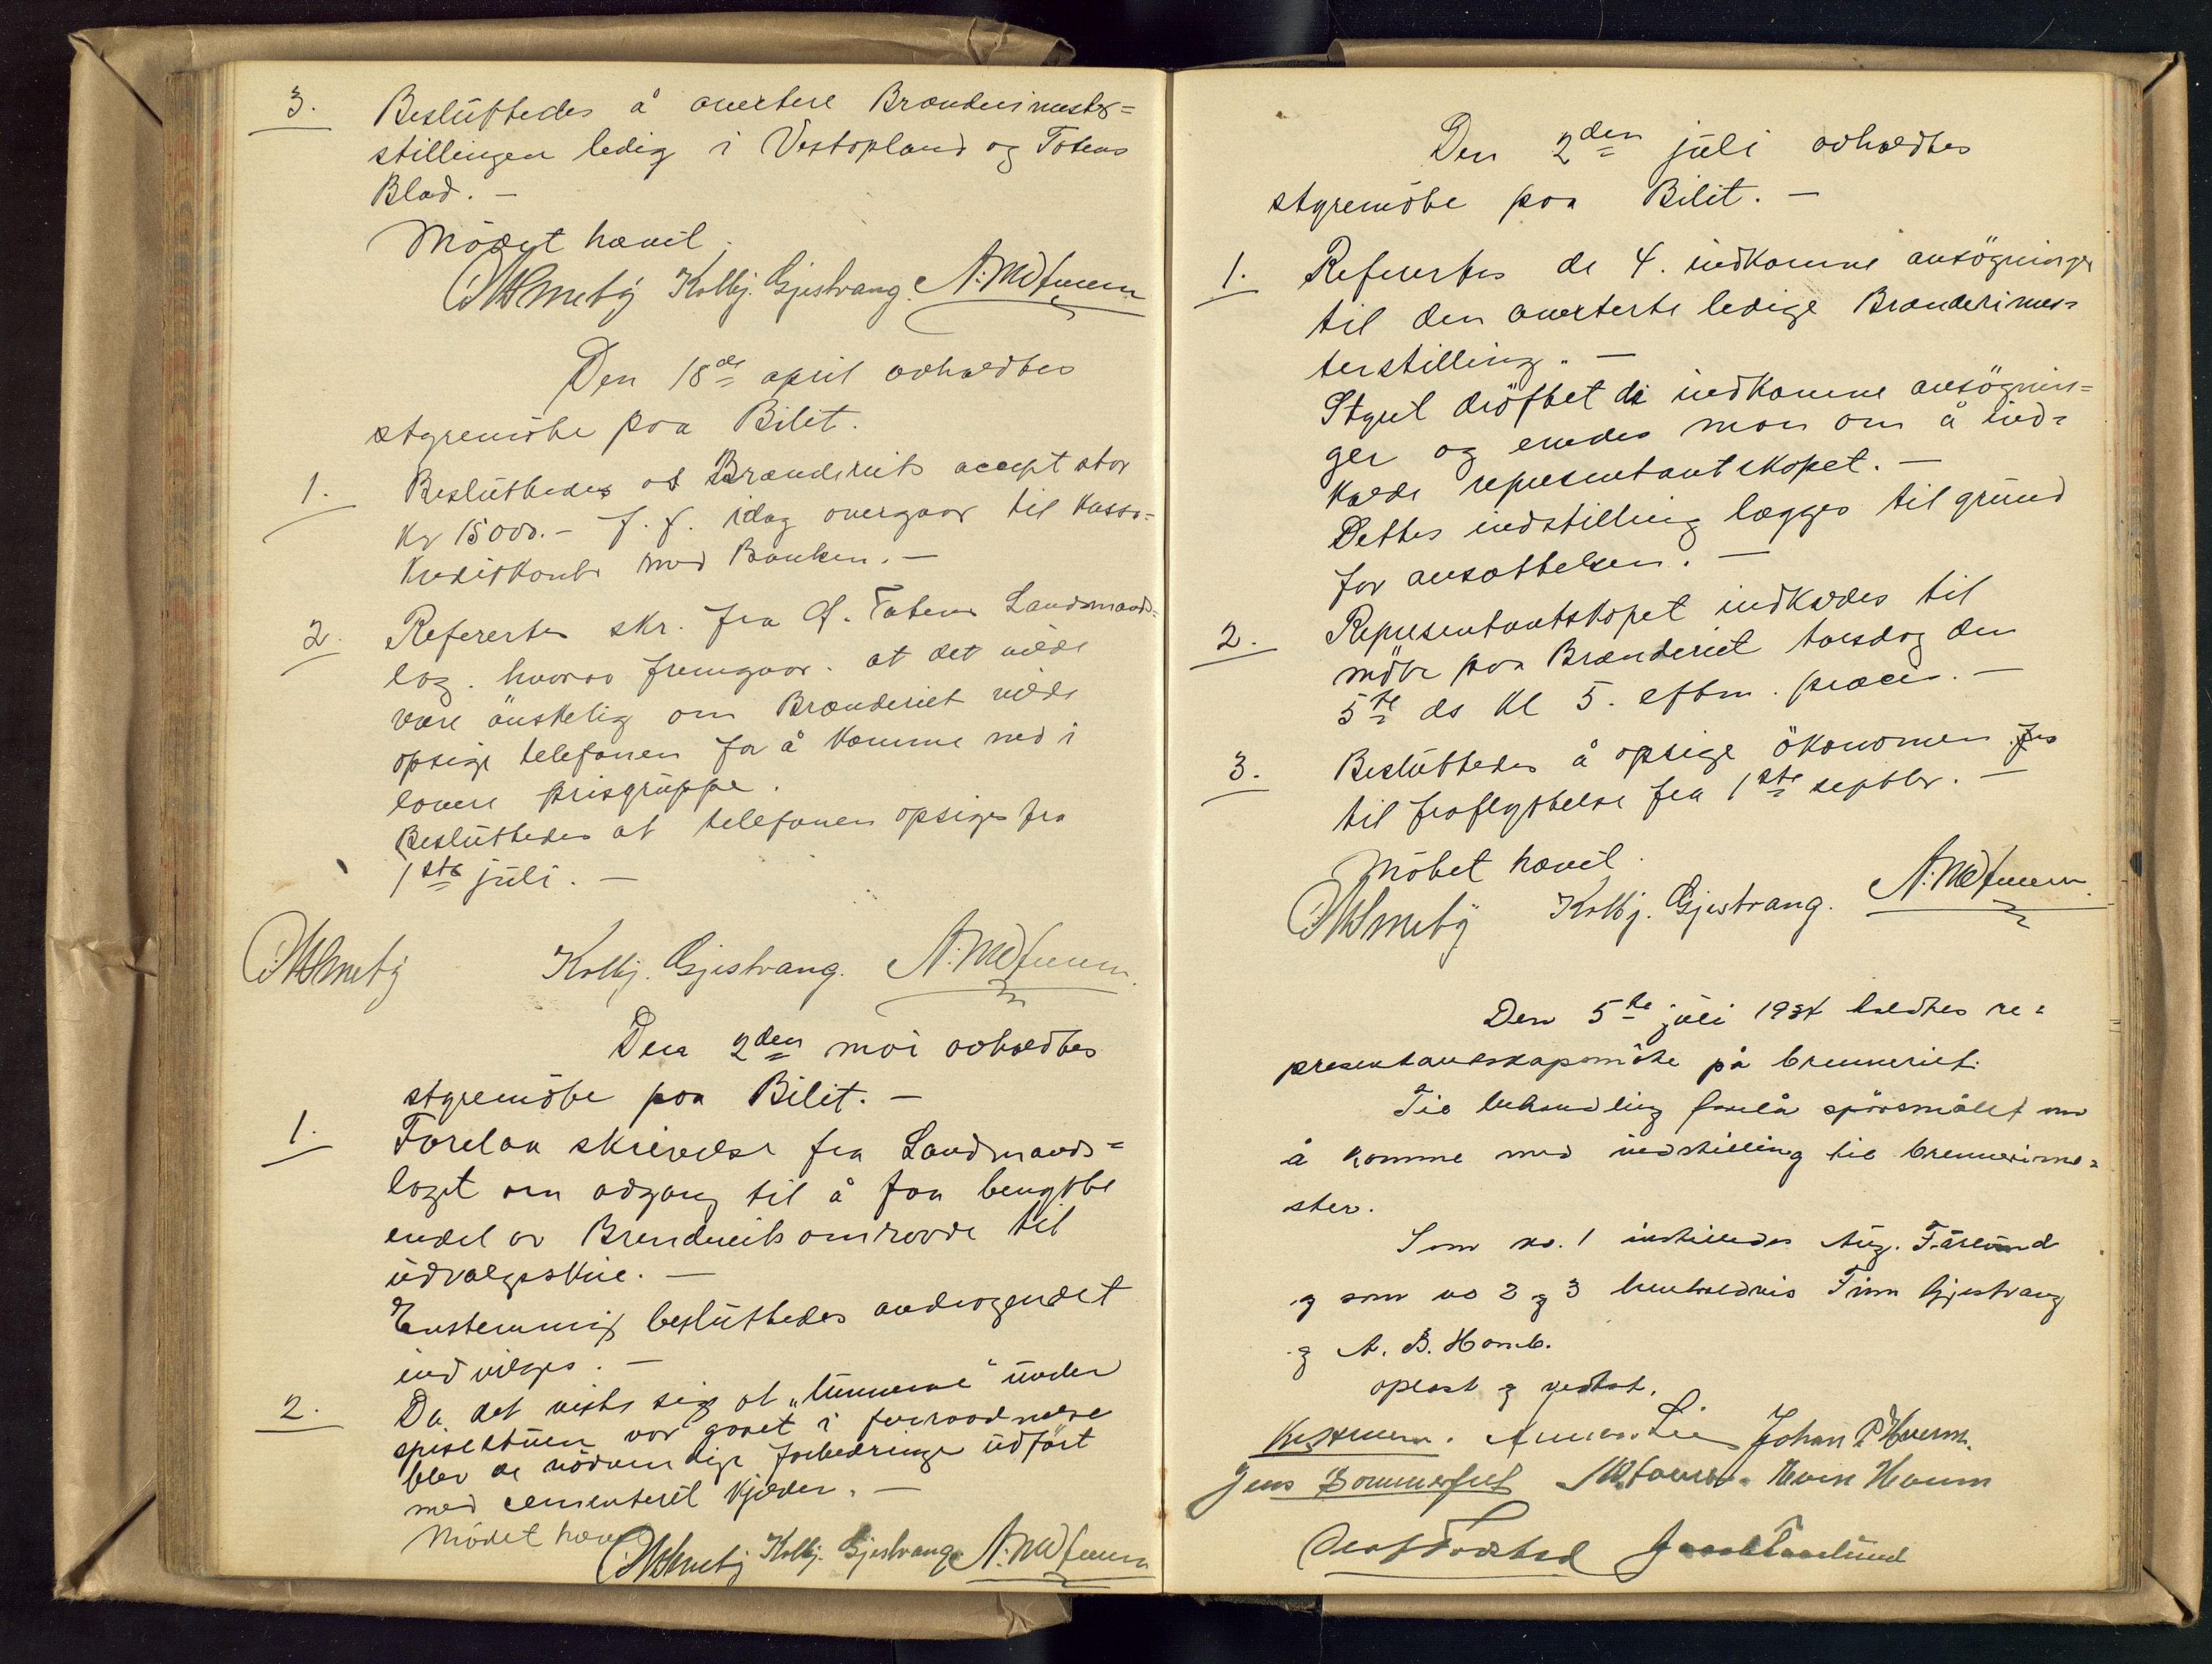 3. Beslüttedes å avertere Brænderimester=
stillingen ledig i Vestopland og Totens
Blad. –
Mödet hævet.
Kolbj. Gjestvang.
Den 18de april avholdtes
styremöte paa Bilit.
1. Beslüttedes at Brænderiets accept stor
Kr 15000.- f. f. idag overgaar til Kassa=
Kreditkonto med Banken. –
2. Refertes skr. fra Ø. Totens Landmands=
lag. hvorav fremgaar. at det vilde
være önskelig om Brænderiet vilde
opsige telefonen for å komme ned i
lavere prisgrüppe.
Beslüttedes at telefonen opsiges fra
1ste jüli. –
Kolbj. Gjestvang.
Den 2den mai avholdtes
styremöte paa Bilit. –
1. Forelaa skrivelse fra Landmands=
laget om adgang til å faa benytte
endel av Brenderiets omraade til
üdvalgsskue. –
Enstemmig beslüttedes andragendet
indvilges. –
2. Da det viste sig at „tünnerne" ünder
spisestüen var gaaet i forraadnelse
blev de nödvendige forbedringer üdfört
med cementeret kjelder. –
Mödet hævet
Kolbj. Gjestvang
Den 2den jüli avholdtes
styremöte paa Bilit. –
1. Refertes de 4. indkomne ansögninger
til den averterte ledige Brænderimes=
terstilling. –
Styret dröftet de indkomne ansögnin=
ger og enedes man om å ind=
kalde representantskapet. –
Dettes indstilling lægges til gründ
for ansættelsen. –
2. Representantskapet indkaldes til
möte paa Brænderiet torsdag den
5te ds kl 5. eftm. præcis. –
3. Beslüttedes å opsige ökonomen
til fraflyttelse fra 1ste septbr. –
Mötet hævet.
Kolbj. Gjestvang.
Den 5te jüli 1934 holdtes re=
presentantskapsmöte på brenneriet.
Til behandling forelå spörsmålet om
å komme med indstilling til brennerime=
ster.
Som no. 1 instilledes Aug. Färlünd
og som no 2 og 3 henholdsvis Finn Gjestvang
og A. B. Homb.
oplest og vedtat.
Johan P Hveem.
Jens Sommerfelt
Olaf Fodstad